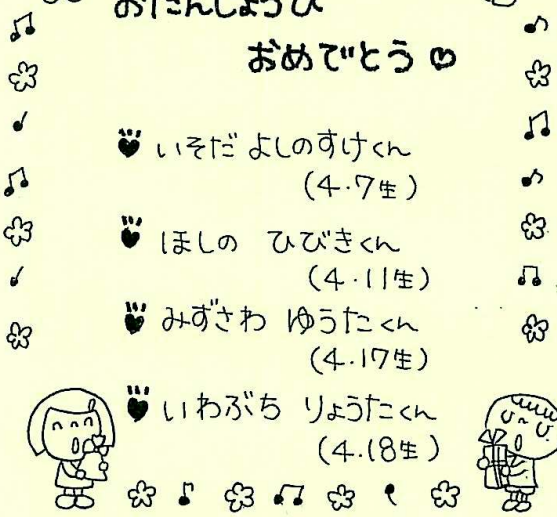 おたんじょうび
おめでとう♡
いそだ よしのすけくん
(4.7生)
ほしの ひびきくん
(4.11生)
みずさわ ゆうたくん
(4.17生)
いわぶち りょうたくん
(4.18生)